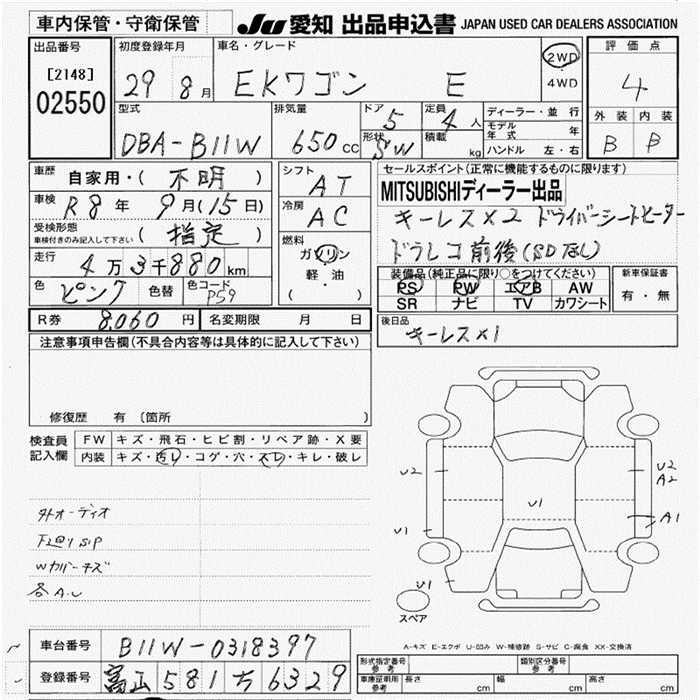 車内保管・守衛保管
JU 愛知 出品申込書 JAPAN USED CAR DEALERS ASSOCIATION
出品番号
[2148]
02550
初度登録年月
29 8月
車名・グレード
EKワゴン E
2WD
・
4WD
評価点
4
外装 内装
B B
型式
DBA-B11W
排気量
650cc
ドア
5
形状
SW
定員
4人
積載
kg
ディーラー・並行
モデル年式 年
ハンドル 左・右
車歴 自家用・( 不明 )
車検 R8年 9月(15日)
受検形態
車検付きのみ記入して下さい ( 指定 )
走行 4万3千880km
色 ピンク 色替 色コード P59
シフト
AT
冷房
AC
燃料
ガソリン
軽・油
( )
セールスポイント(正常に機能するものに限ります)
MITSUBISHIディーラー出品
キーレス×2 ドライバーシートヒーター
ドラレコ前後(SDなし)
装備品(純正品に限り○をつけてください)
PS PW エアB AW
SR ナビ TV カワシート
新車保証書
有・無
R券 8,060円 名変期限 月 日
後日品
キーレス×1
注意事項申告欄(不具合内容等は具体的に記入して下さい)
修復歴 有 (箇所 )
検査員
記入欄
FW キズ・飛石・ヒビ割・リペア跡・X要
内装 キズ・汚レ・コゲ・穴・スレ・キレ・破レ
外オーディオ
Wカバーキズ
各A.U
U2
U1
U1
U1
U2
A2
A1
スペア
A-キズ E-エクボ U-凹み W-補修跡 S-サビ C-腐食 XX-交換済
車台番号 B11W-0318397
登録番号 富山 581 ち 6329
形式指定番号
参考
類別区分番号
参考
車庫証明用
参考
長さ cm 幅 cm 高さ cm